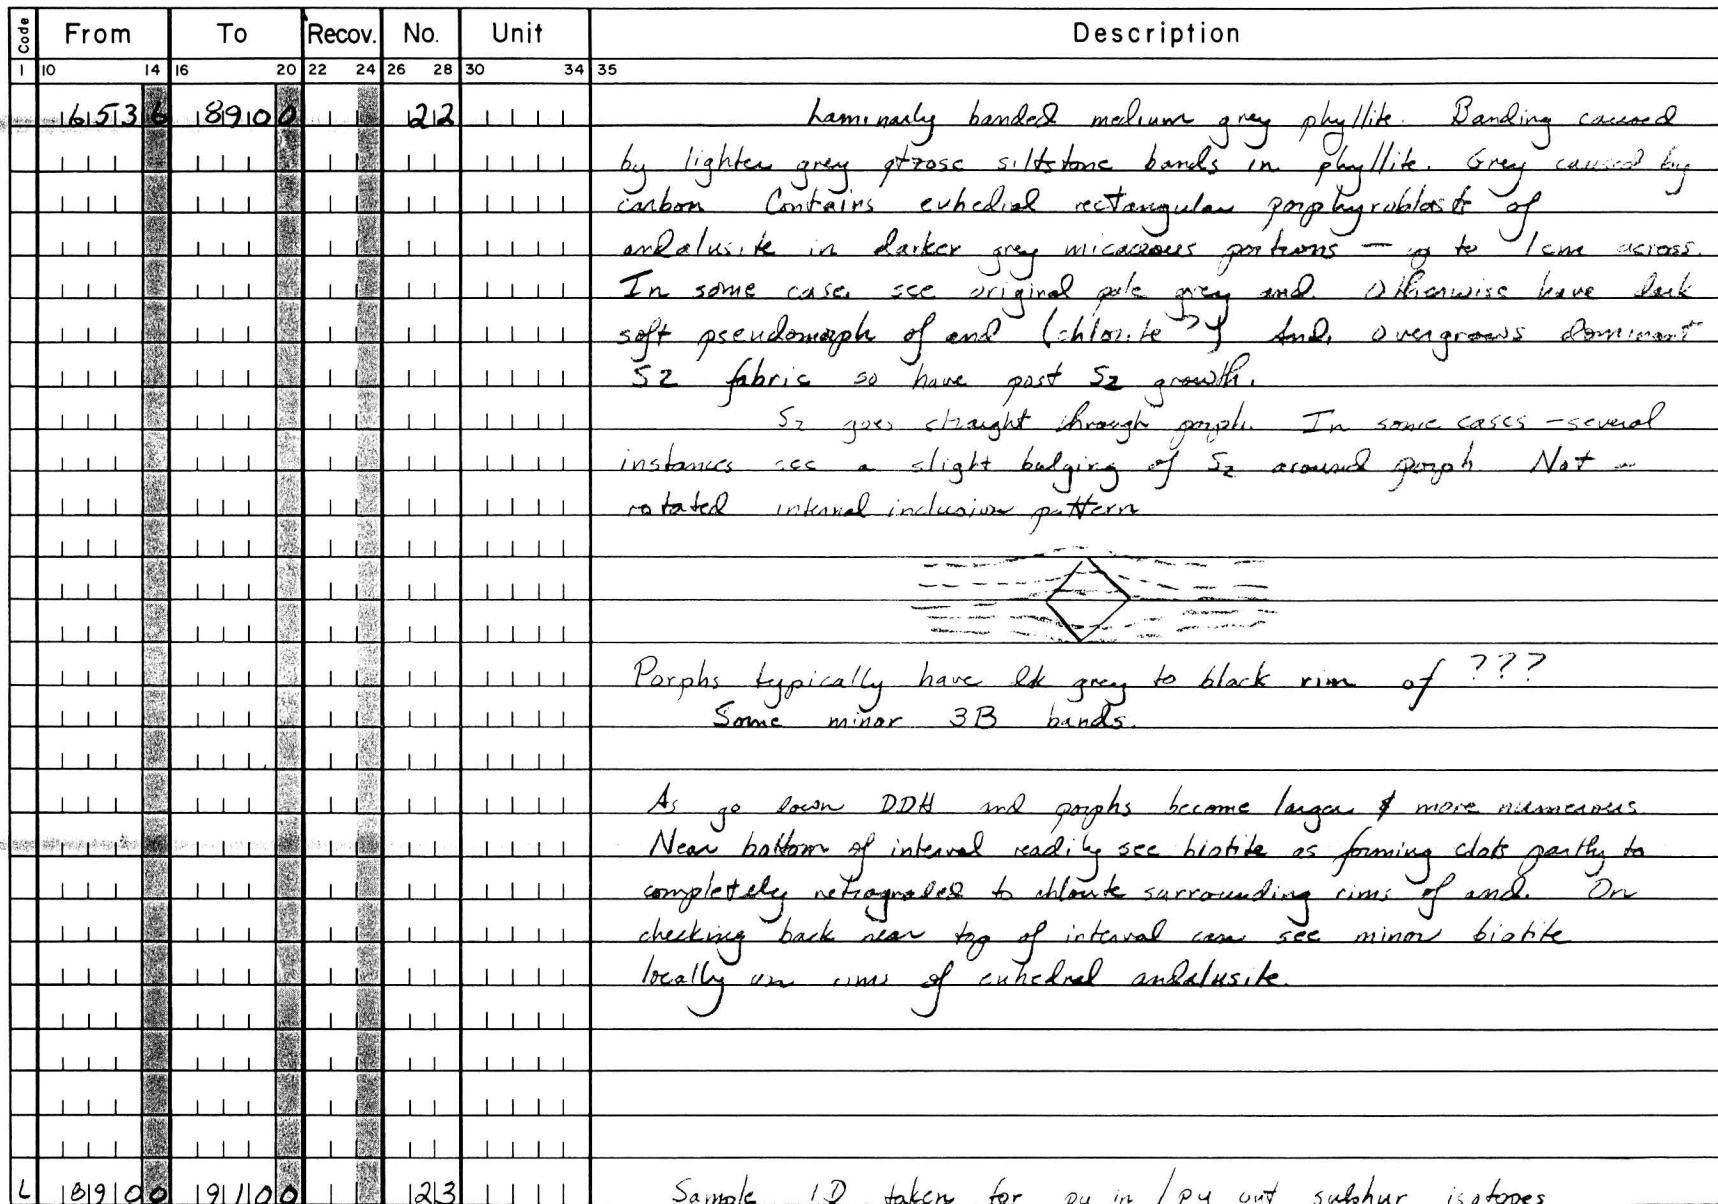 Code From To Recov. No. Unit Description
1 10 14 16 20 22 24 26 28 30 34 35
6536 8900 22 Laminarly banded medium grey phyllite. Banding caused
by lighter grey qtzose siltstone bands in phyllite. Grey caused by
carbon Contains euhedral rectangular porphyroblasts of
andalusite in darker grey micaceous portions — up to 1cm across.
In some cases see original pale grey and. Otherwise have dark
soft pseudomorph of and (chlorite ?) And. overgrows dominant
S2 fabric so have post S2 growth.
S2 goes straight through porph. In some cases - several
instances see a slight bulging of S2 around porph Not
rotated internal inclusion pattern
Porphs typically have dk grey to black rim of ???
Some minor 3B bands.
As go down DDH and porphs become larger & more numerous
Near bottom of interval readily see biotite as forming clots partly to
completely retrograded to chlorite surrounding rims of and. On
checking back near top of interval can see minor biotite
locally on rims of euhedral andalusite.
L 8900 9100 23 Sample 1D taken for py in / py out sulphur isotopes